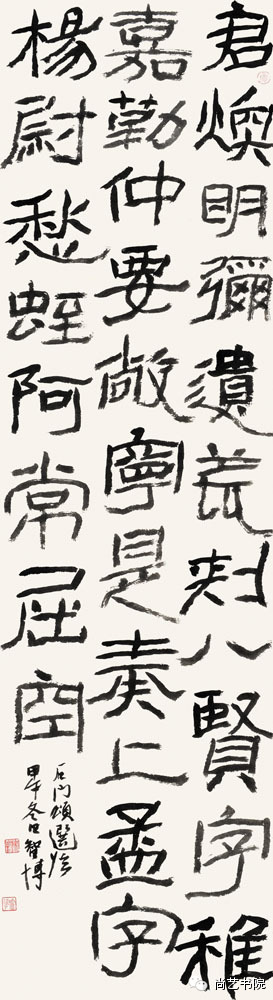 君煥明彌遺刻八賢字稚
嘉勒仲要敞寧是奏上孟字
楊尉愁蛭阿常屈空
石门頌選临
甲午冬日智博
尚艺书院